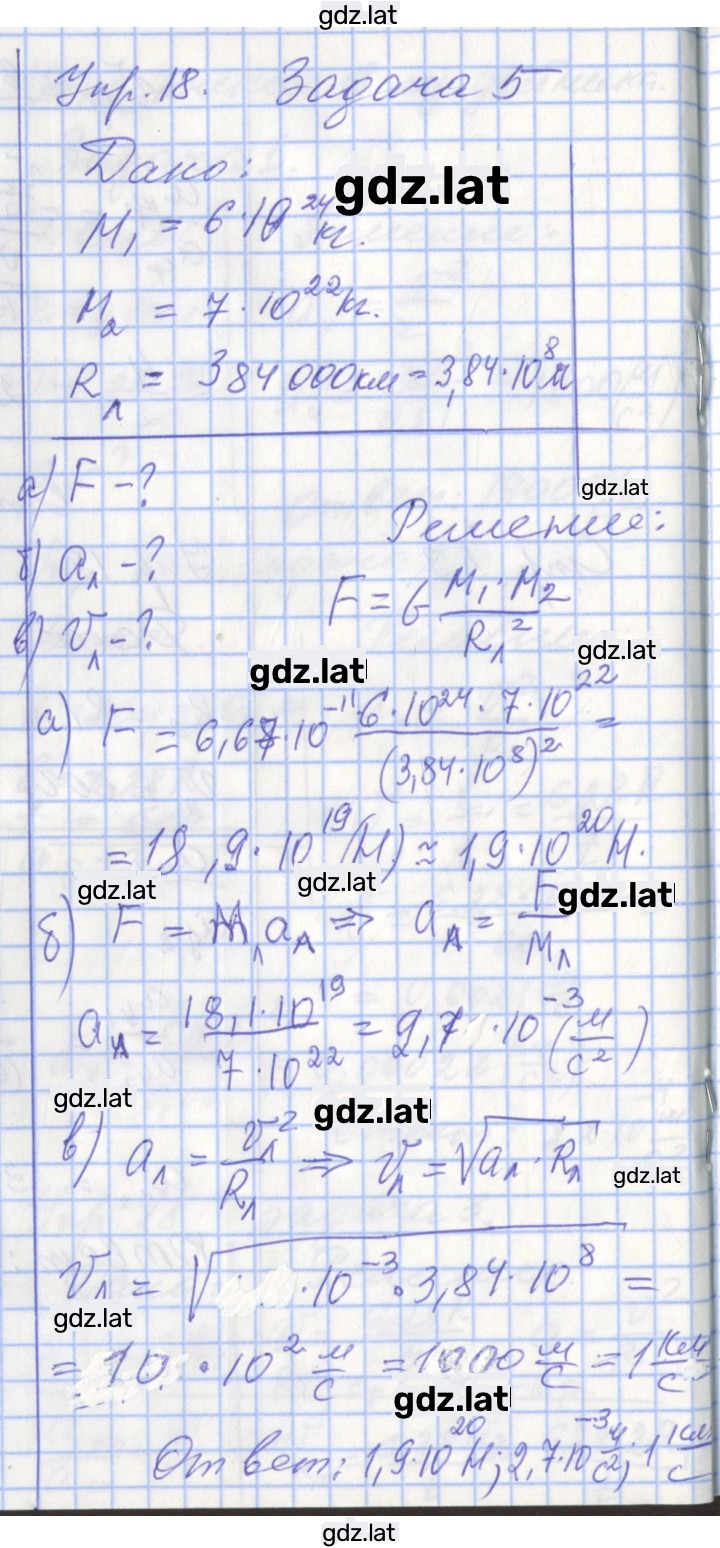 gdz.lat
Упр. 18. Задача 5
Дано:
gdz.lat
M₁ = 6·10²⁴ кг.
M₂ = 7·10²² кг.
Rл = 384 000 км = 3,84·10⁸ м
а) F - ?
gdz.lat
Решение:
б) aл - ?
F = G M₁·M₂ / Rл²
в) vл - ?
gdz.lat
gdz.lat
а) F = 6,67·10⁻¹¹ 6·10²⁴·7·10²² / (3,84·10⁸)² =
= 18,9·10¹⁹ (Н) ≈ 1,9·10²⁰ Н.
gdz.lat
gdz.lat
gdz.lat
б) F = Mл aл ⇒ aл = F / Mл
aл = 18,1·10¹⁹ / 7·10²² = 2,7·10⁻³ (м/с²)
gdz.lat
gdz.lat
в) aл = vл² / Rл ⇒ vл = √aл·Rл
gdz.lat
vл = √ ·10⁻³·3,84·10⁸ =
gdz.lat
= 10·10² м/с = 1000 м/с = 1 км/с
gdz.lat
Ответ: 1,9·10²⁰ Н; 2,7·10⁻³ м/с²; 1 км/с
gdz.lat